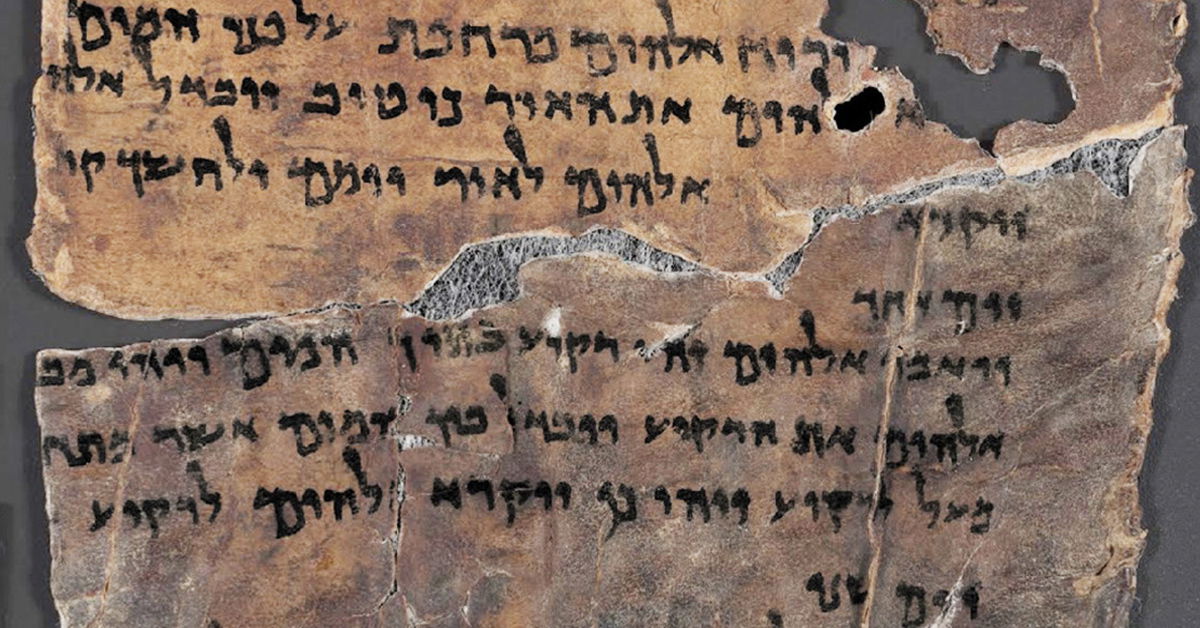 ורוח אלהים מרחפת על פני המים
להים את האור כי טוב ויבדל אלה
אלהים לאור יומם ולחשך ק
ויקרא
יום אחד
ויאמר אלהים יהי רקיע בתוך המים ויהי מב
אלהים את הרקיע ויבדל בין המים אשר מתח
מעל לרקיע ויהי כן ויקרא אלהים לרקיע
יום שני